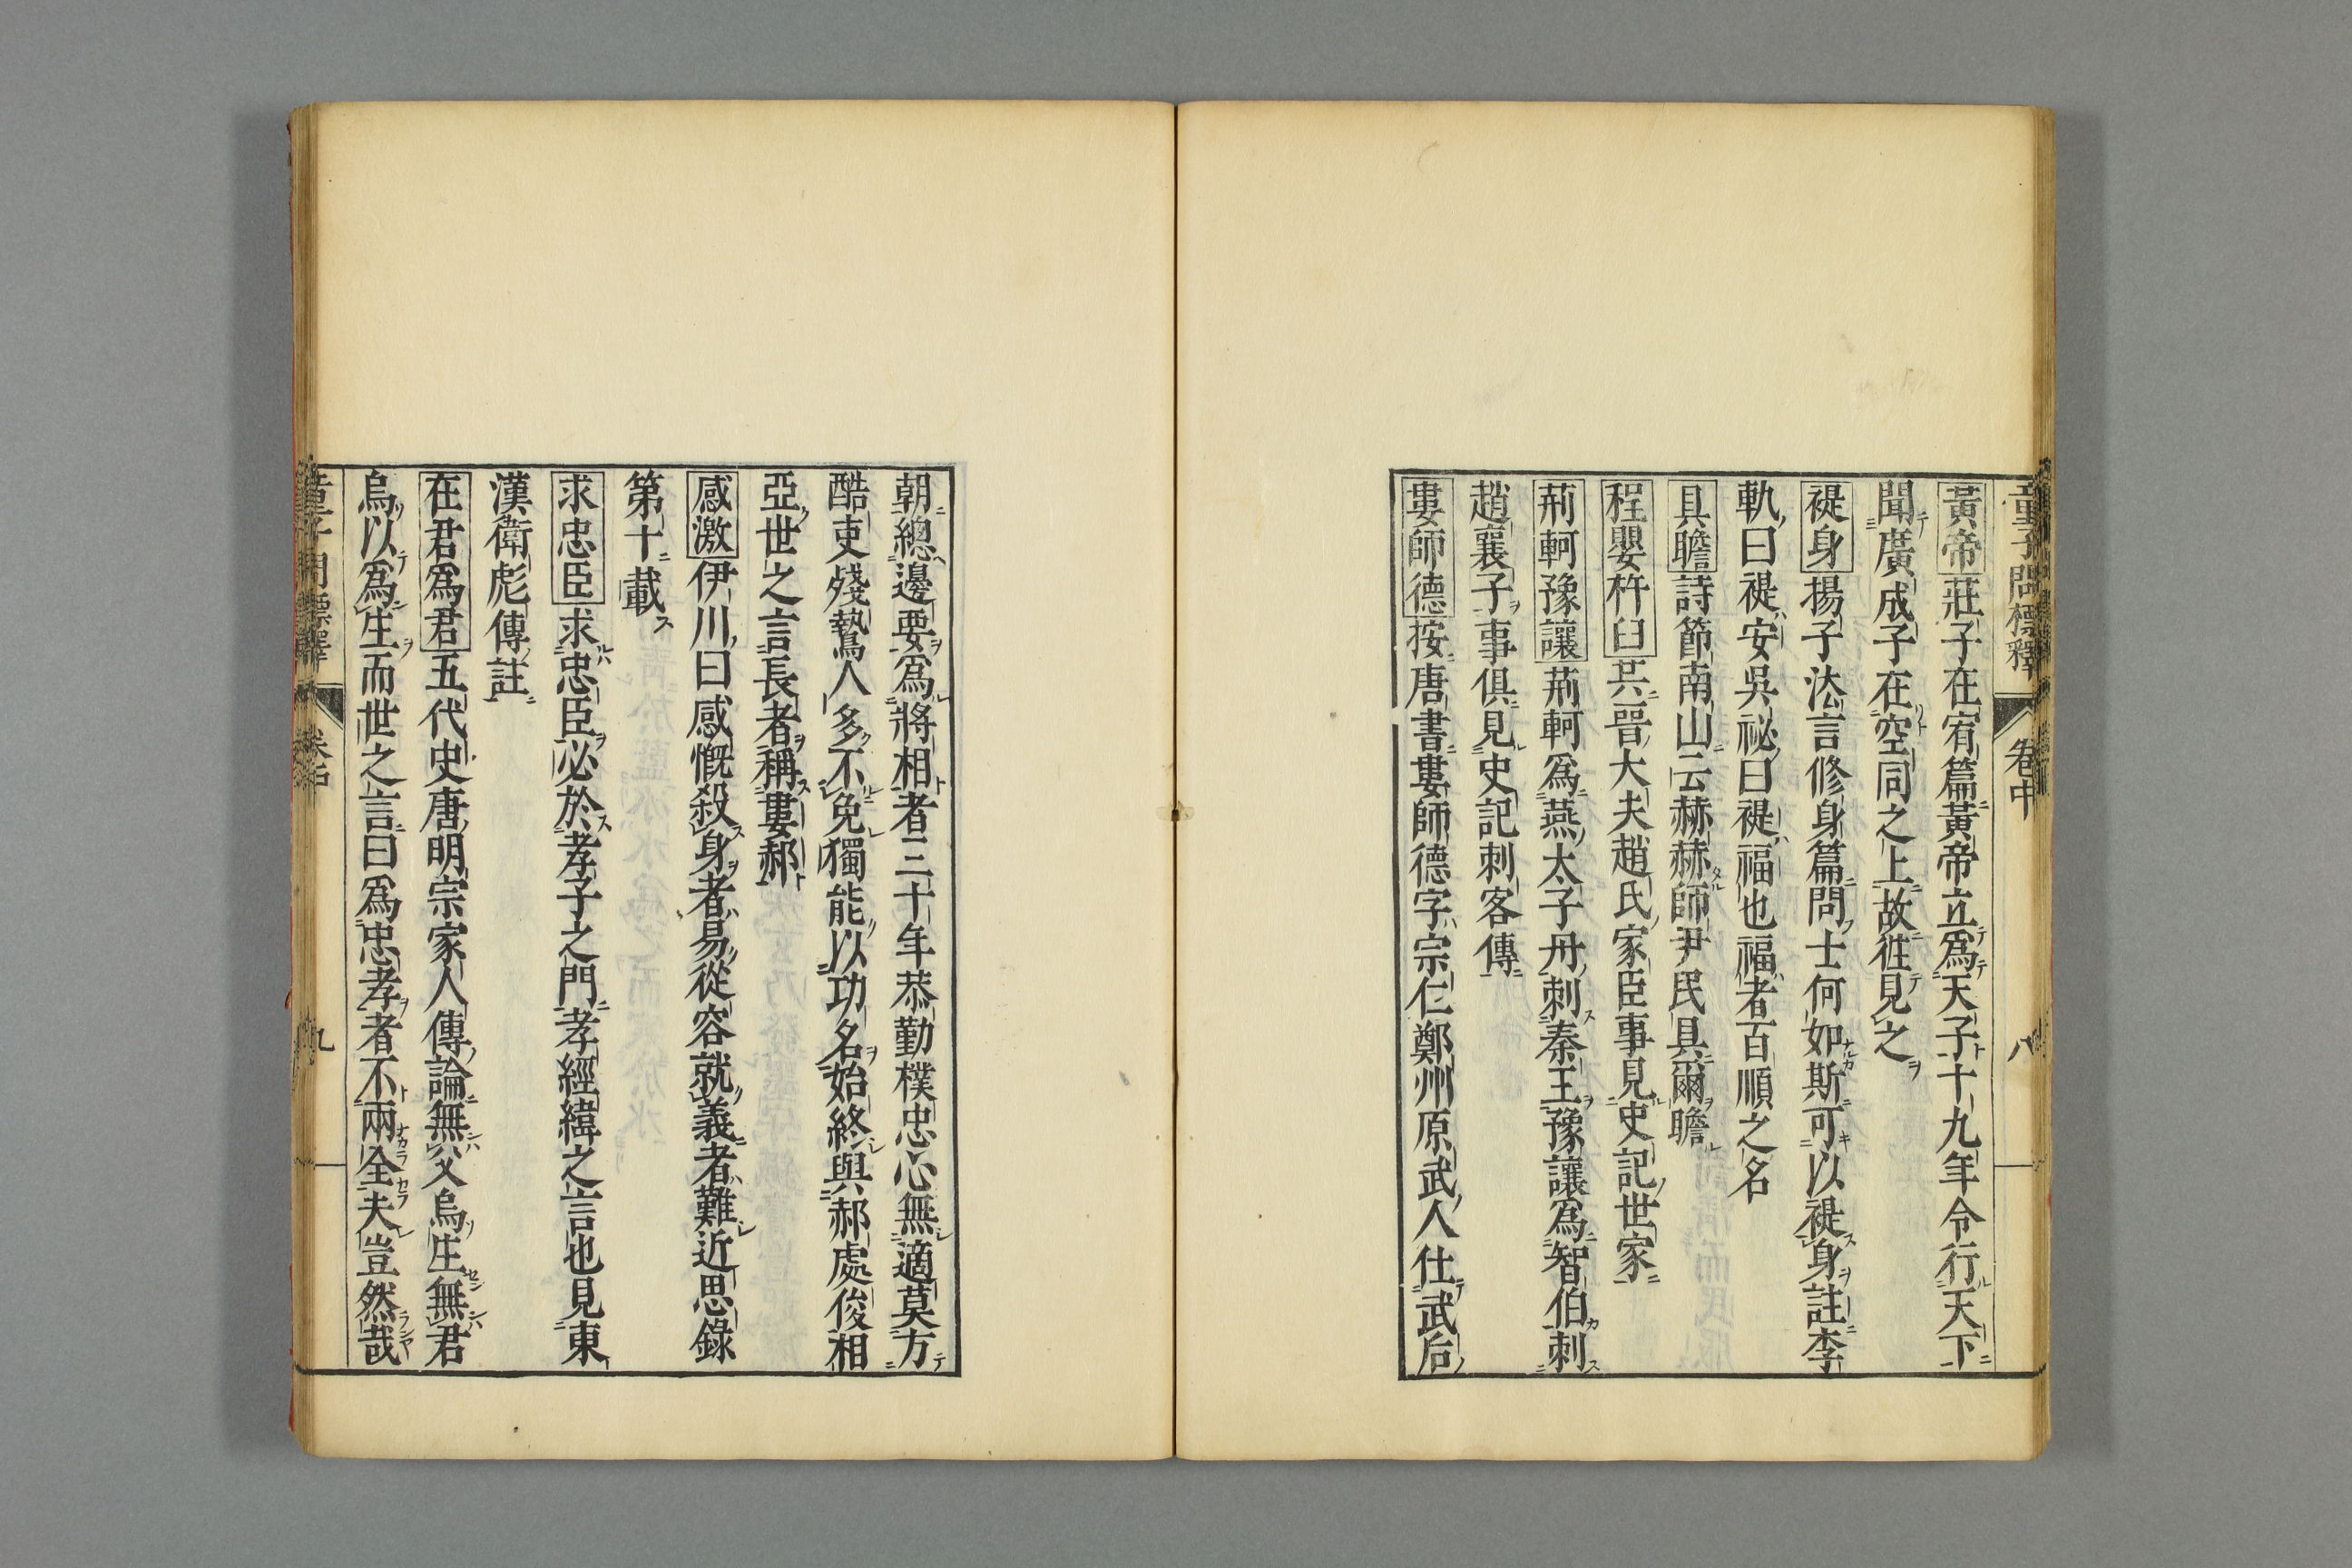 童子問標釋 卷中 八
黃帝莊子在宥篇黃帝立爲天子十九年令行天下
聞廣成子在空同之上故徃見之
禔身揚子法言修身篇問士何如斯可以禔身註李
軌曰禔安吳祕曰禔福也福者百順之名
具瞻詩節南山云赫赫師尹民具爾瞻
程嬰杵臼共晉大夫趙氏家臣事見史記世家
荊軻豫讓荊軻爲燕太子丹刺秦王豫讓爲智伯刺
趙襄子事俱見史記刺客傳
婁師德按唐書婁師德字宗仁鄭州原武人仕武后
朝總邊要爲將相者三十年恭勤樸忠心無適莫方
酷吏殘鷙人多不免獨能以功名始終與郝處俊相
亞世之言長者稱婁郝
感激伊川曰感慨殺身者易從容就義者難近思錄
第十載
求忠臣求忠臣必於孝子之門孝經緯之言也見東
漢衛彪傳註
在君爲君五代史唐明宗家人傳論無父烏生無君
烏以爲生而世之言曰爲忠孝者不兩全夫豈然哉
童子問標釋 卷中 九